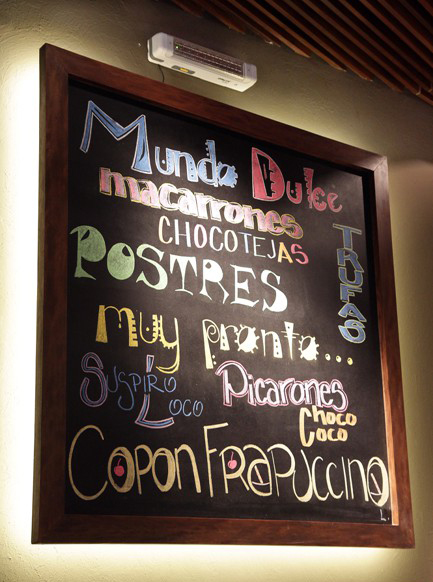 Mundo Dulce
macarrones
CHOCOTEJAS
TRUFAS
POSTRES
muy pronto...
Suspiro
Loco
Picarones
Choco
Coco
Copon Frapuccino
L.